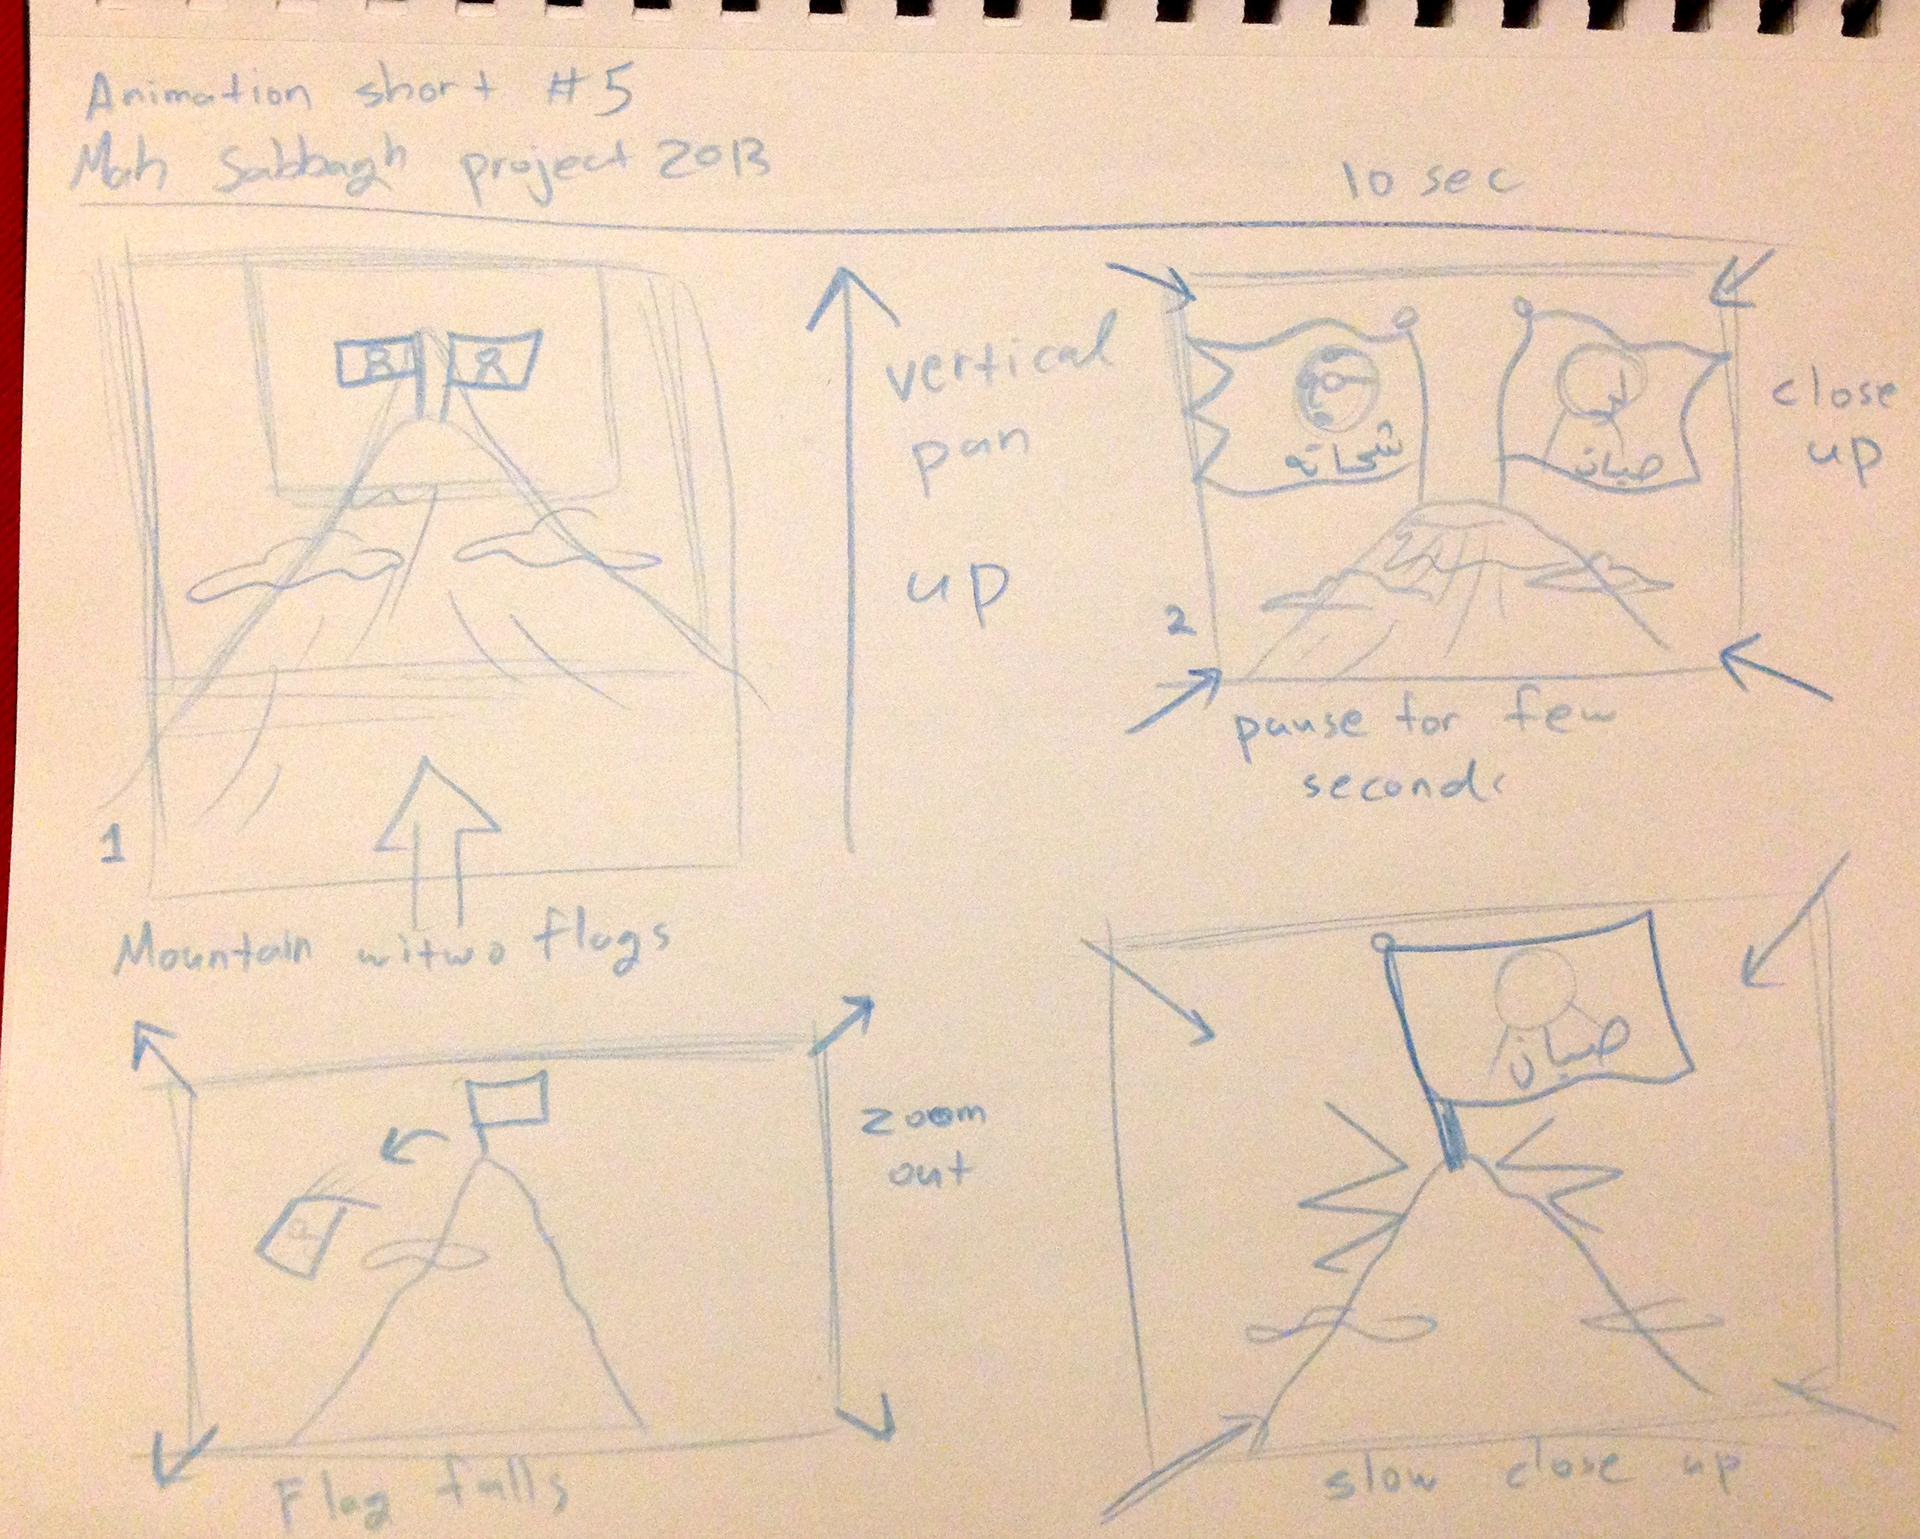 Animation short #5
Mah Sabbagh project 2013
10 sec
vertical
pan
up
1
Mountain witwo flags
شحاته
صبان
close
up
2
pause for few
seconds
zoom
out
Flag falls
صبان
slow close up